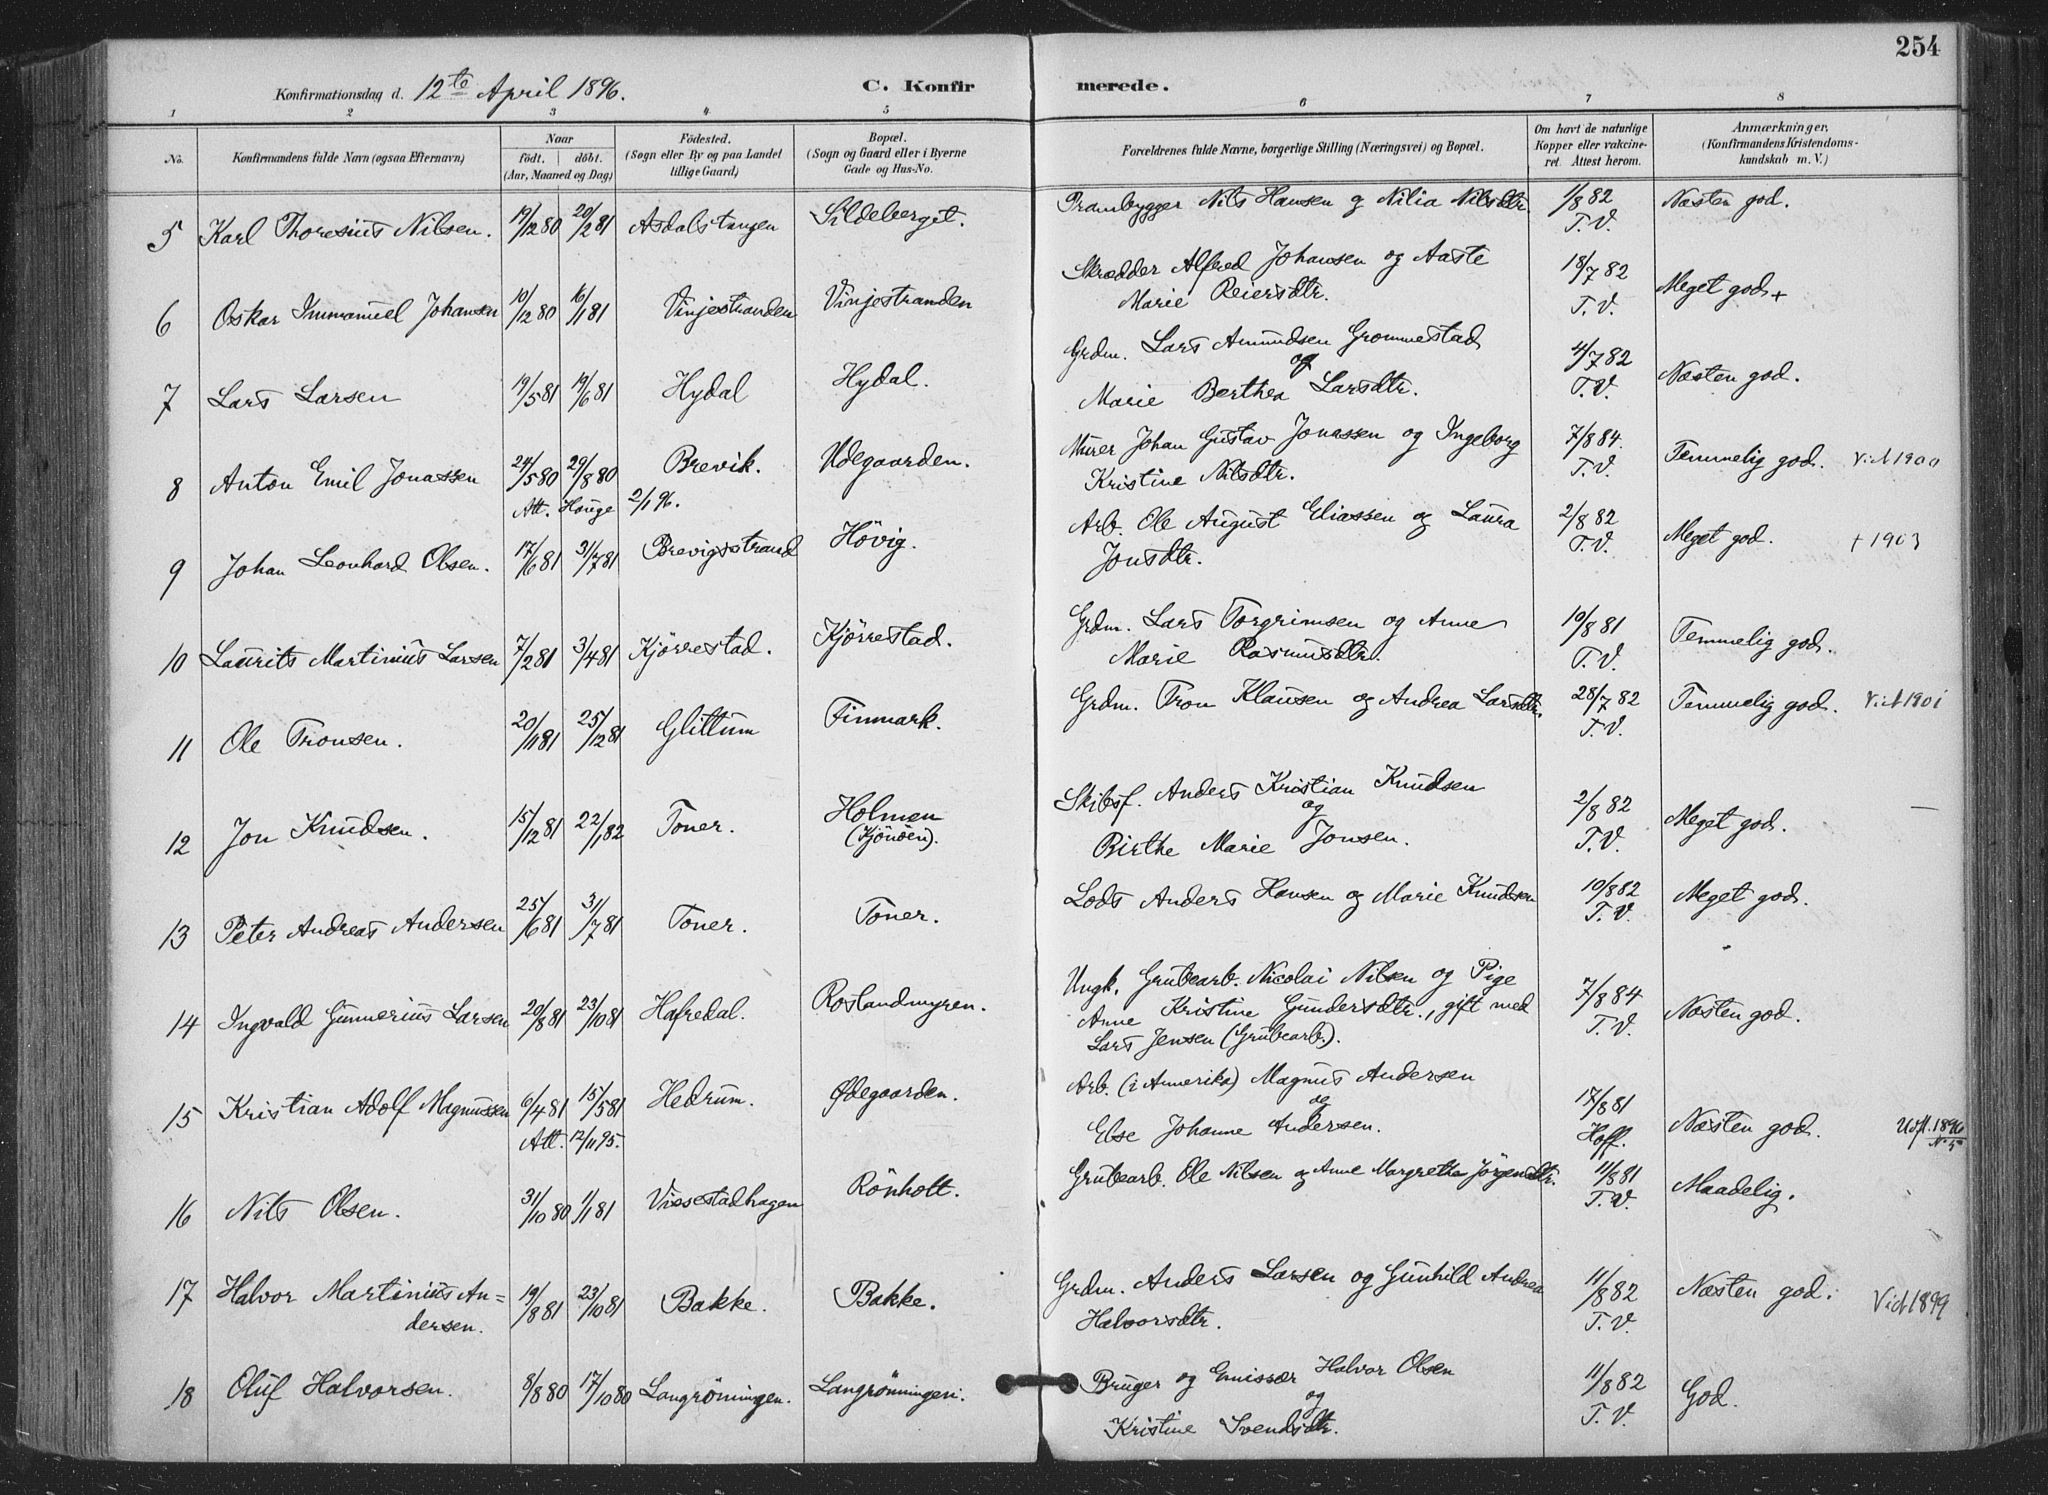 254
Konfirmationsdag d. 12te April 1896. C. Konfirmerede.
1 2 3 4 5 6 7 8
No. Konfirmandens fulde Navn (ogsaa Efternavn) Naar födt. döbt. (Aar, Maaned og Dag) Födested. (Sogn eller By og paa Landet tillige Gaard) Bopæl. (Sogn og Gaard eller i Byerne Gade og Hus-No. Forældrenes fulde Navne, borgerlige Stilling (Næringsvei) og Bopæl. Om havt de naturlige Kopper eller vakcineret. Attest herom. Anmærkninger. (Konfirmandens Kristendomskundskab m. V.)
5 Karl Thoresius Nilsen. 19/12 80 20/2 81 Asdalstangen Sildeberget. Prambygger Nils Hansen og Nilia Nilsdtr. 1/8 82 T.V. Næsten god.
6 Oskar Immanuel Johansen 10/12 80 16/1 81 Vinjestranden Vinjestranden Skrædder Alfred Johansen og Aaste
Marie Reiersdtr. 18/7 82 T.V. Meget god+
7 Lars Larsen 19/5 81 19/6 81 Hydal Hydal. Grdm. Lars Amundsen Grommestad
og
Marie Berthea Larsdtr. 4/7 82 T.V. Næsten god.
8 Anton Emil Jonassen 24/5 80 29/8 80 Brevik. Ødegaarden. Murer Johan Gustav Jonassen og Ingeborg
Kristine Nilsdtr. 7/8 84. T.V. Temmelig god. Vid 1900
Att. Houge 2/1 96.
9 Johan Leonhard Olsen. 17/6 81 31/7 81 Brevigsstrand Hövig. Arb. Ole August Eliassen og Laura
Jonsdtr. 2/8 82 T.V. Meget god. + 1903
10 Laurits Martinius Larsen 7/2 81 3/4 81 Kjörrestad. Kjörrestad. Grdm. Lars Torgrimsen og Anne
Marie Rasmusdtr. 10/8 81 T.V. Temmelig god.
11 Ole Tronsen. 20/11 81 25/12 81 Glittum Finmark. Grdm. Tron Klausen og Andrea Larsdtr. 28/7 82 T.V. Temmelig god. Vid 1901
12 Jon Knudsen. 15/12 81 22/1 82 Toner. Holmen
(Kjönöen). Skibsf. Anders Kristian Knudsen
og
Birthe Marie Jonsen. 2/8 82 T.V. Meget god.
13 Peter Andreas Andersen 25/6 81 31/7 81 Toner. Toner. Lods Anders Hansen og Marie Knudsen 10/8 82 T.V. Meget god.
14 Ingvald Gunnerius Larsen 20/8 81 23/10 81 Hafredal. Roslandmyren. Ungk. Grubearb. Nicolai Nilsen og Pige
Anne Kristine Gundersdtr., gift med
Lars Jensen (Grubearb.). 7/8 84 T.V. Næsten god.
15 Kristian Adolf Magnussen 6/4 81 15/5 81 Hedrum. Ødegaarden. Arb. (i Amerika) Magnus Andersen
og
Else Johanne Andersen. 17/8 81 Hoff. Næsten god. Udfl. 1896 No 5
Att. 12/11 95.
16 Nils Olsen. 31/10 80 1/1 81 Vissestadhagen Rönholt. Grubearb. Ole Nilsen og Anne Margrethe Jörgensdtr. 11/8 81 T.V. Maadelig.
17 Halvor Martinius An=
dersen. 19/8 81 23/10 81 Bakke. Bakke. Grdm. Anders Larsen og Gunhild Andrea
Halvorsdtr. 11/8 82 T.V. Næsten god. Vid 1899
18 Oluf Halvorsen. 8/8 80 17/10 80 Langrönningen. Langrönningen. Bruger og Emissær Halvor Olsen
og
Kristine Svendsdtr. 11/8 82 T.V. God.